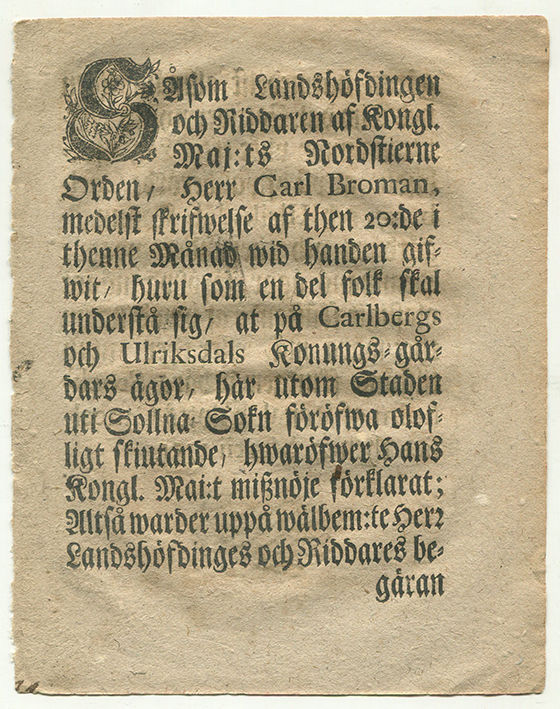 SÅsom Landshöfdingen
och Riddaren af Kongl.
Maj:ts Nordstierne
Orden, Herr Carl Broman,
medelst skrifwelse af then 20:de i
thenne Månad wid handen gif-
wit, huru som en del folk skal
understå sig, at på Carlbergs
och Ulriksdals Konungs-går-
dars ägor, här utom Staden
uti Sollna Sokn föröfwa olof-
ligt skiutande, hwaröfwer Hans
Kongl. Maj:t mißnöje förklarat;
Altså warder uppå wälbem:te Herr
Landshöfdinges och Riddares be-
gäran